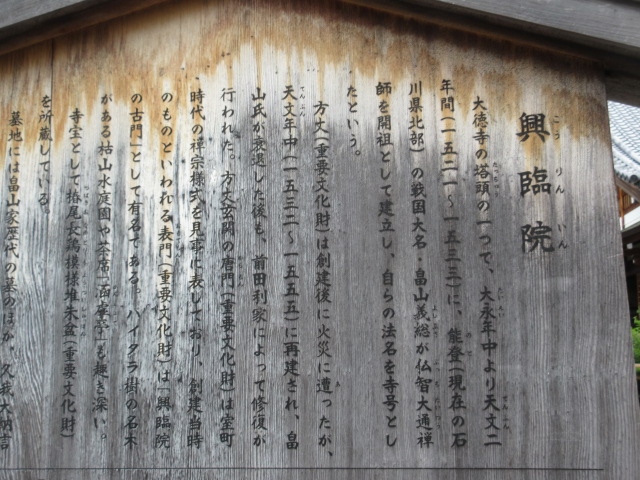 興臨院
こうりんいん
大徳寺の塔頭の一つで、大永年中より天文二
年間（一五二一～一五三三）に、能登（現在の石
川県北部）の戦国大名・畠山義総が仏智大通禅
師を開祖として建立し、自らの法名を寺号とし
たという。
方丈（重要文化財）は創建後に火災に遭ったが、
天文年中（一五三二～一五五五）に再建され、畠
山氏が衰退した後も、前田利家によって修復が
行われた。方丈玄関の唐門（重要文化財）は室町
時代の禅宗様式を見事に表しており、創建当時
のものといわれる表門（重要文化財）は「興臨院
の古門」として有名である。バイタラ樹の名木
がある枯山水庭園や茶席「涵虚亭」も趣き深い。
寺宝として椿尾長鶏模様堆朱盆（重要文化財）
を所蔵している。
墓地には畠山家歴代の墓のほか、久我大納言